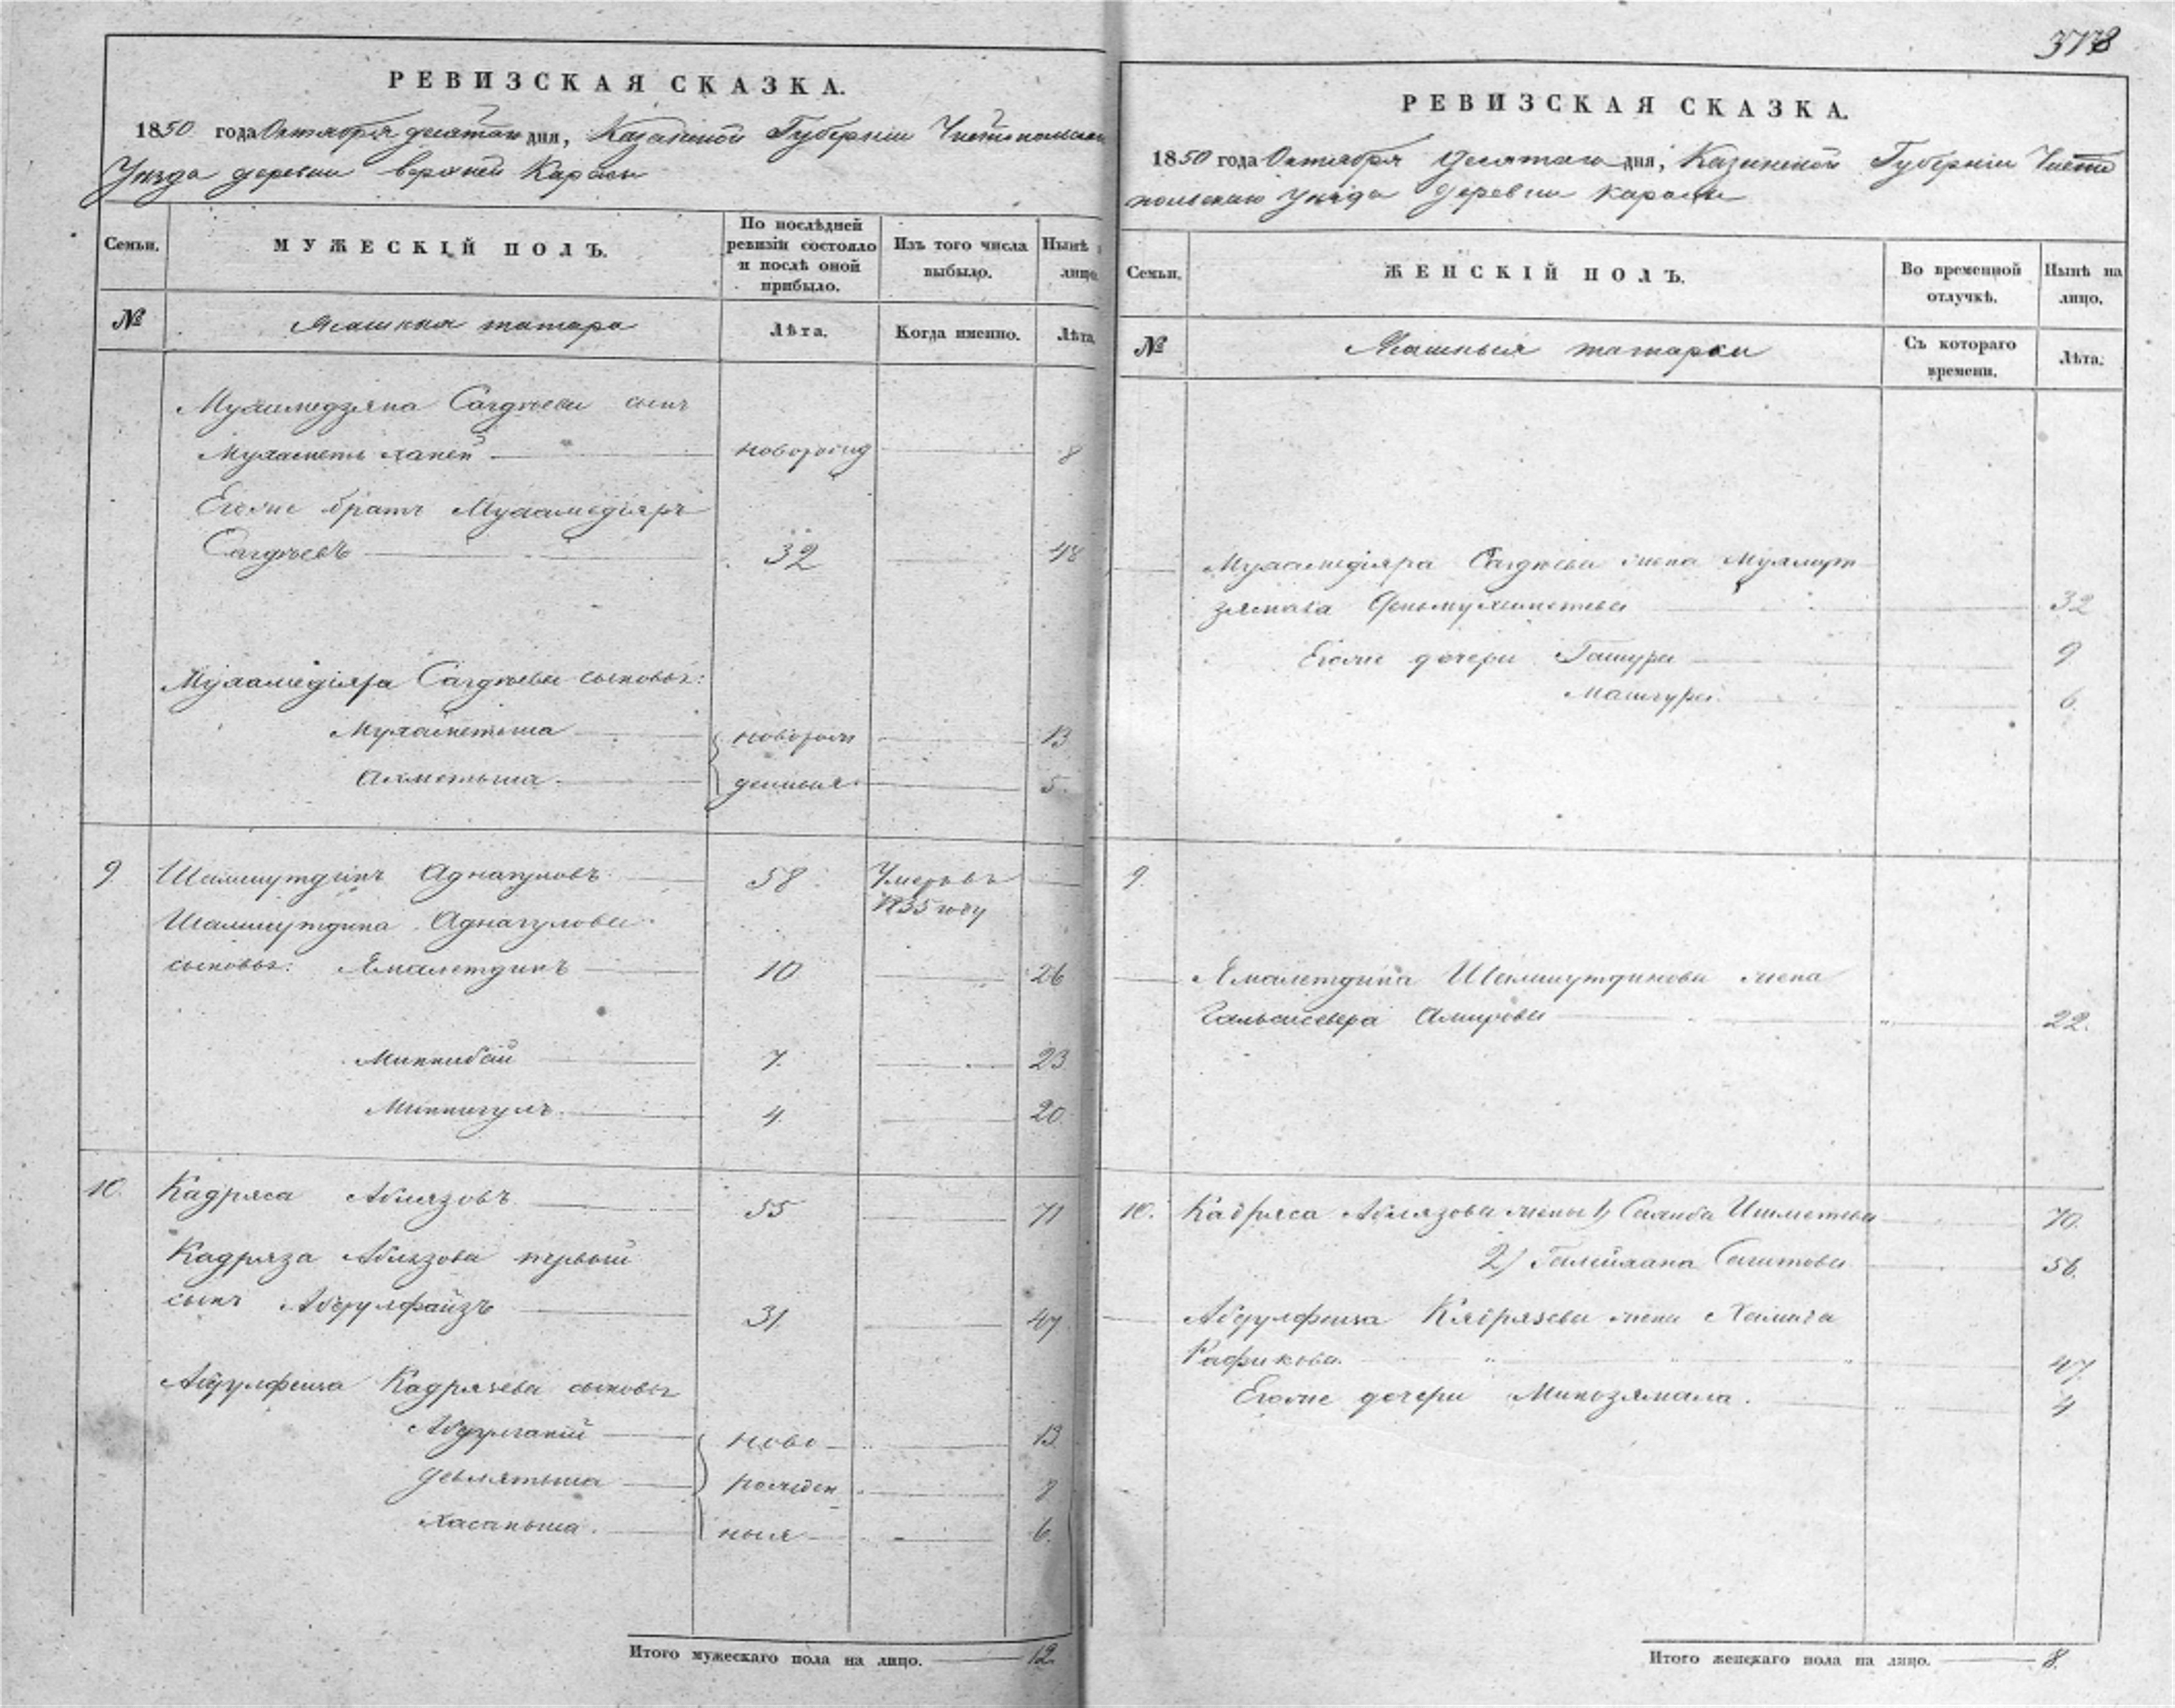 РЕВИЗСКАЯ СКАЗКА.
1850 года Октября десятаго дня, Казанской Губерніи Чистопольскаго
Уѣзда деревни верхней Караси
Семьи.
МУЖЕСКІЙ ПОЛЪ.
По послѣдней ревизіи состояло и послѣ оной прибыло.
Изъ того числа выбыло.
Нынѣ лицо.
№
Ясашныя татара
Лѣта.
Когда именно.
Лѣта
Мухамедзяна Сагдѣева сынъ
Мухаметъ ханей новорожд 8
Егоже братъ Мухамедіяръ
Сагдѣевъ 32 48
Мухамедіяра Сагдѣева сыновья:
Мухаметьша новорож 13
Ахметьша денныя 5.
9 Шамшутдинъ Аднагуловъ 58. Умеръ въ
1835 году
Шамшутдина Аднагулова
сыновья: Ямалетдинъ 10 26
Миннибай 7. 23
Миннигулъ 4. 20
10. Кадряса Аблязовъ 55 71
Кадряза Аблязова первый
сынъ Абдулфаизъ 31. 47
Абдулфеиза Кадрязева сыновья
Абдулганій ново 13
девлятьша рожден 8
Хасаньша. ныя 6.
Итого мужескаго пола на лицо. 12
378
РЕВИЗСКАЯ СКАЗКА.
1850 года Октября Десятаго дня, Казанской Губерніи Чисто
польскаго Уѣзда Деревни Караси
Семьи.
ЖЕНСКІЙ ПОЛЪ.
Во временной отлучкѣ.
Нынѣ на лицо.
№
Ясашныя татарки
Съ котораго времени.
Лѣта.
Мухамедіяра Сагдѣева жена
32
Егоже дочери Гашура 9
Машгура 6.
9.
Ямалетдина Шамшутдинова жена
Амирова 22.
10. Кадряса Аблязова жены 1, Ишметева 70.
2) Сагитова 56.
Абдулфеиза Кадрязева жена
Рафикова. 47
Егоже дочери Минзямала. 4
Итого женскаго пола на лицо. 8.